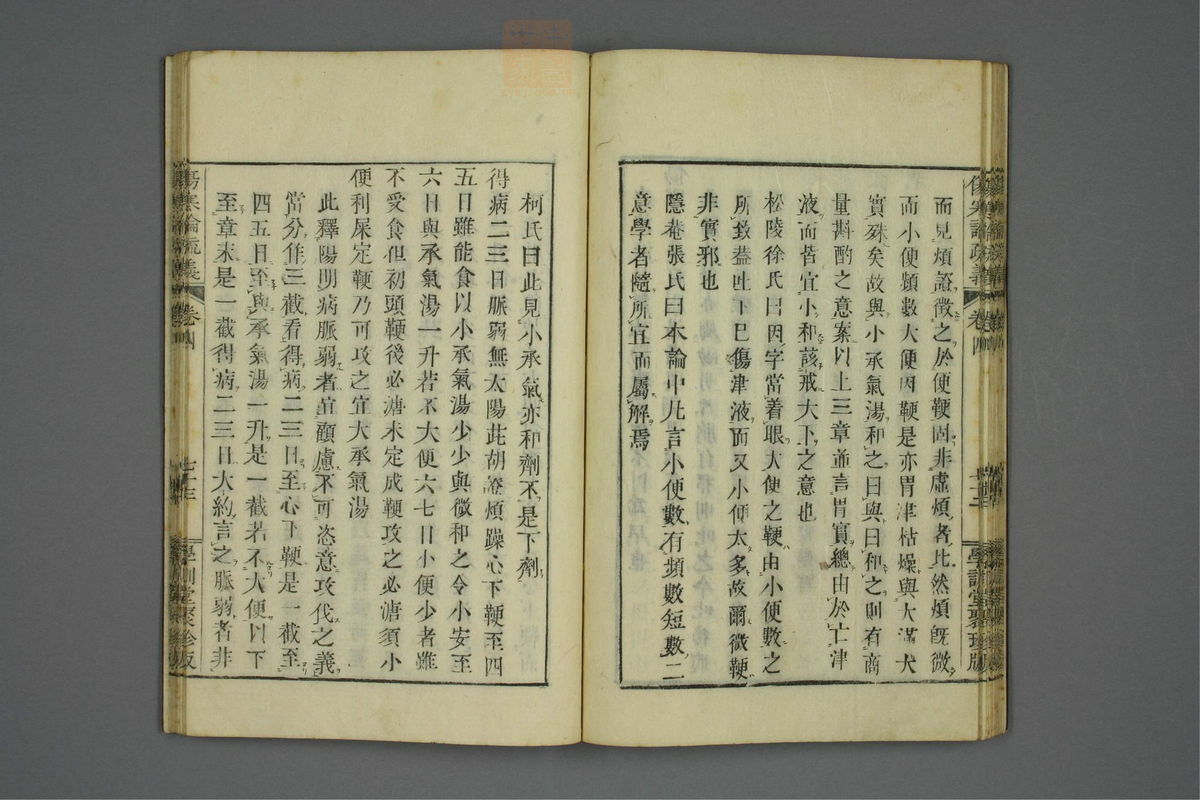 而見煩證徵之於便鞕固非虛煩者比然煩既微
而小便頻數大便因鞕是亦胃津枯燥與大滿大
實殊矣故與小承氣湯和之曰與曰和之則有商
量斟酌之意案以上三章並言胃實總由於亡津
液而皆宜小和該戒大下之意也
松陵徐氏曰因字當着眼大便之鞕由小便數之
所致蓋吐下已傷津液而又小便太多故爾微鞕
非實邪也
隱菴張氏曰本論中凡言小便數有頻數短數二
意學者隨所宜而屬解焉
柯氏曰此見小承氣亦和劑不是下劑
得病二三日脈弱無太陽茈胡證煩躁心下鞕至四
五日雖能食以小承氣湯少少與微和之令小安至
六日與承氣湯一升若不大便六七日小便少者雖
不受食但初頭鞕後必溏未定成鞕攻之必溏須小
便利屎定鞕乃可攻之宜大承氣湯
此釋陽明病脈弱者宜顧慮不可恣意攻伐之義
當分作三截看得病二三日至心下鞕是一截至
四五日至與承氣湯一升是一截若不大便以下
至章末是一截得病二三日大約言之脈弱者非
傷寒論疏義
卷四
七十三
學訓堂聚珍版